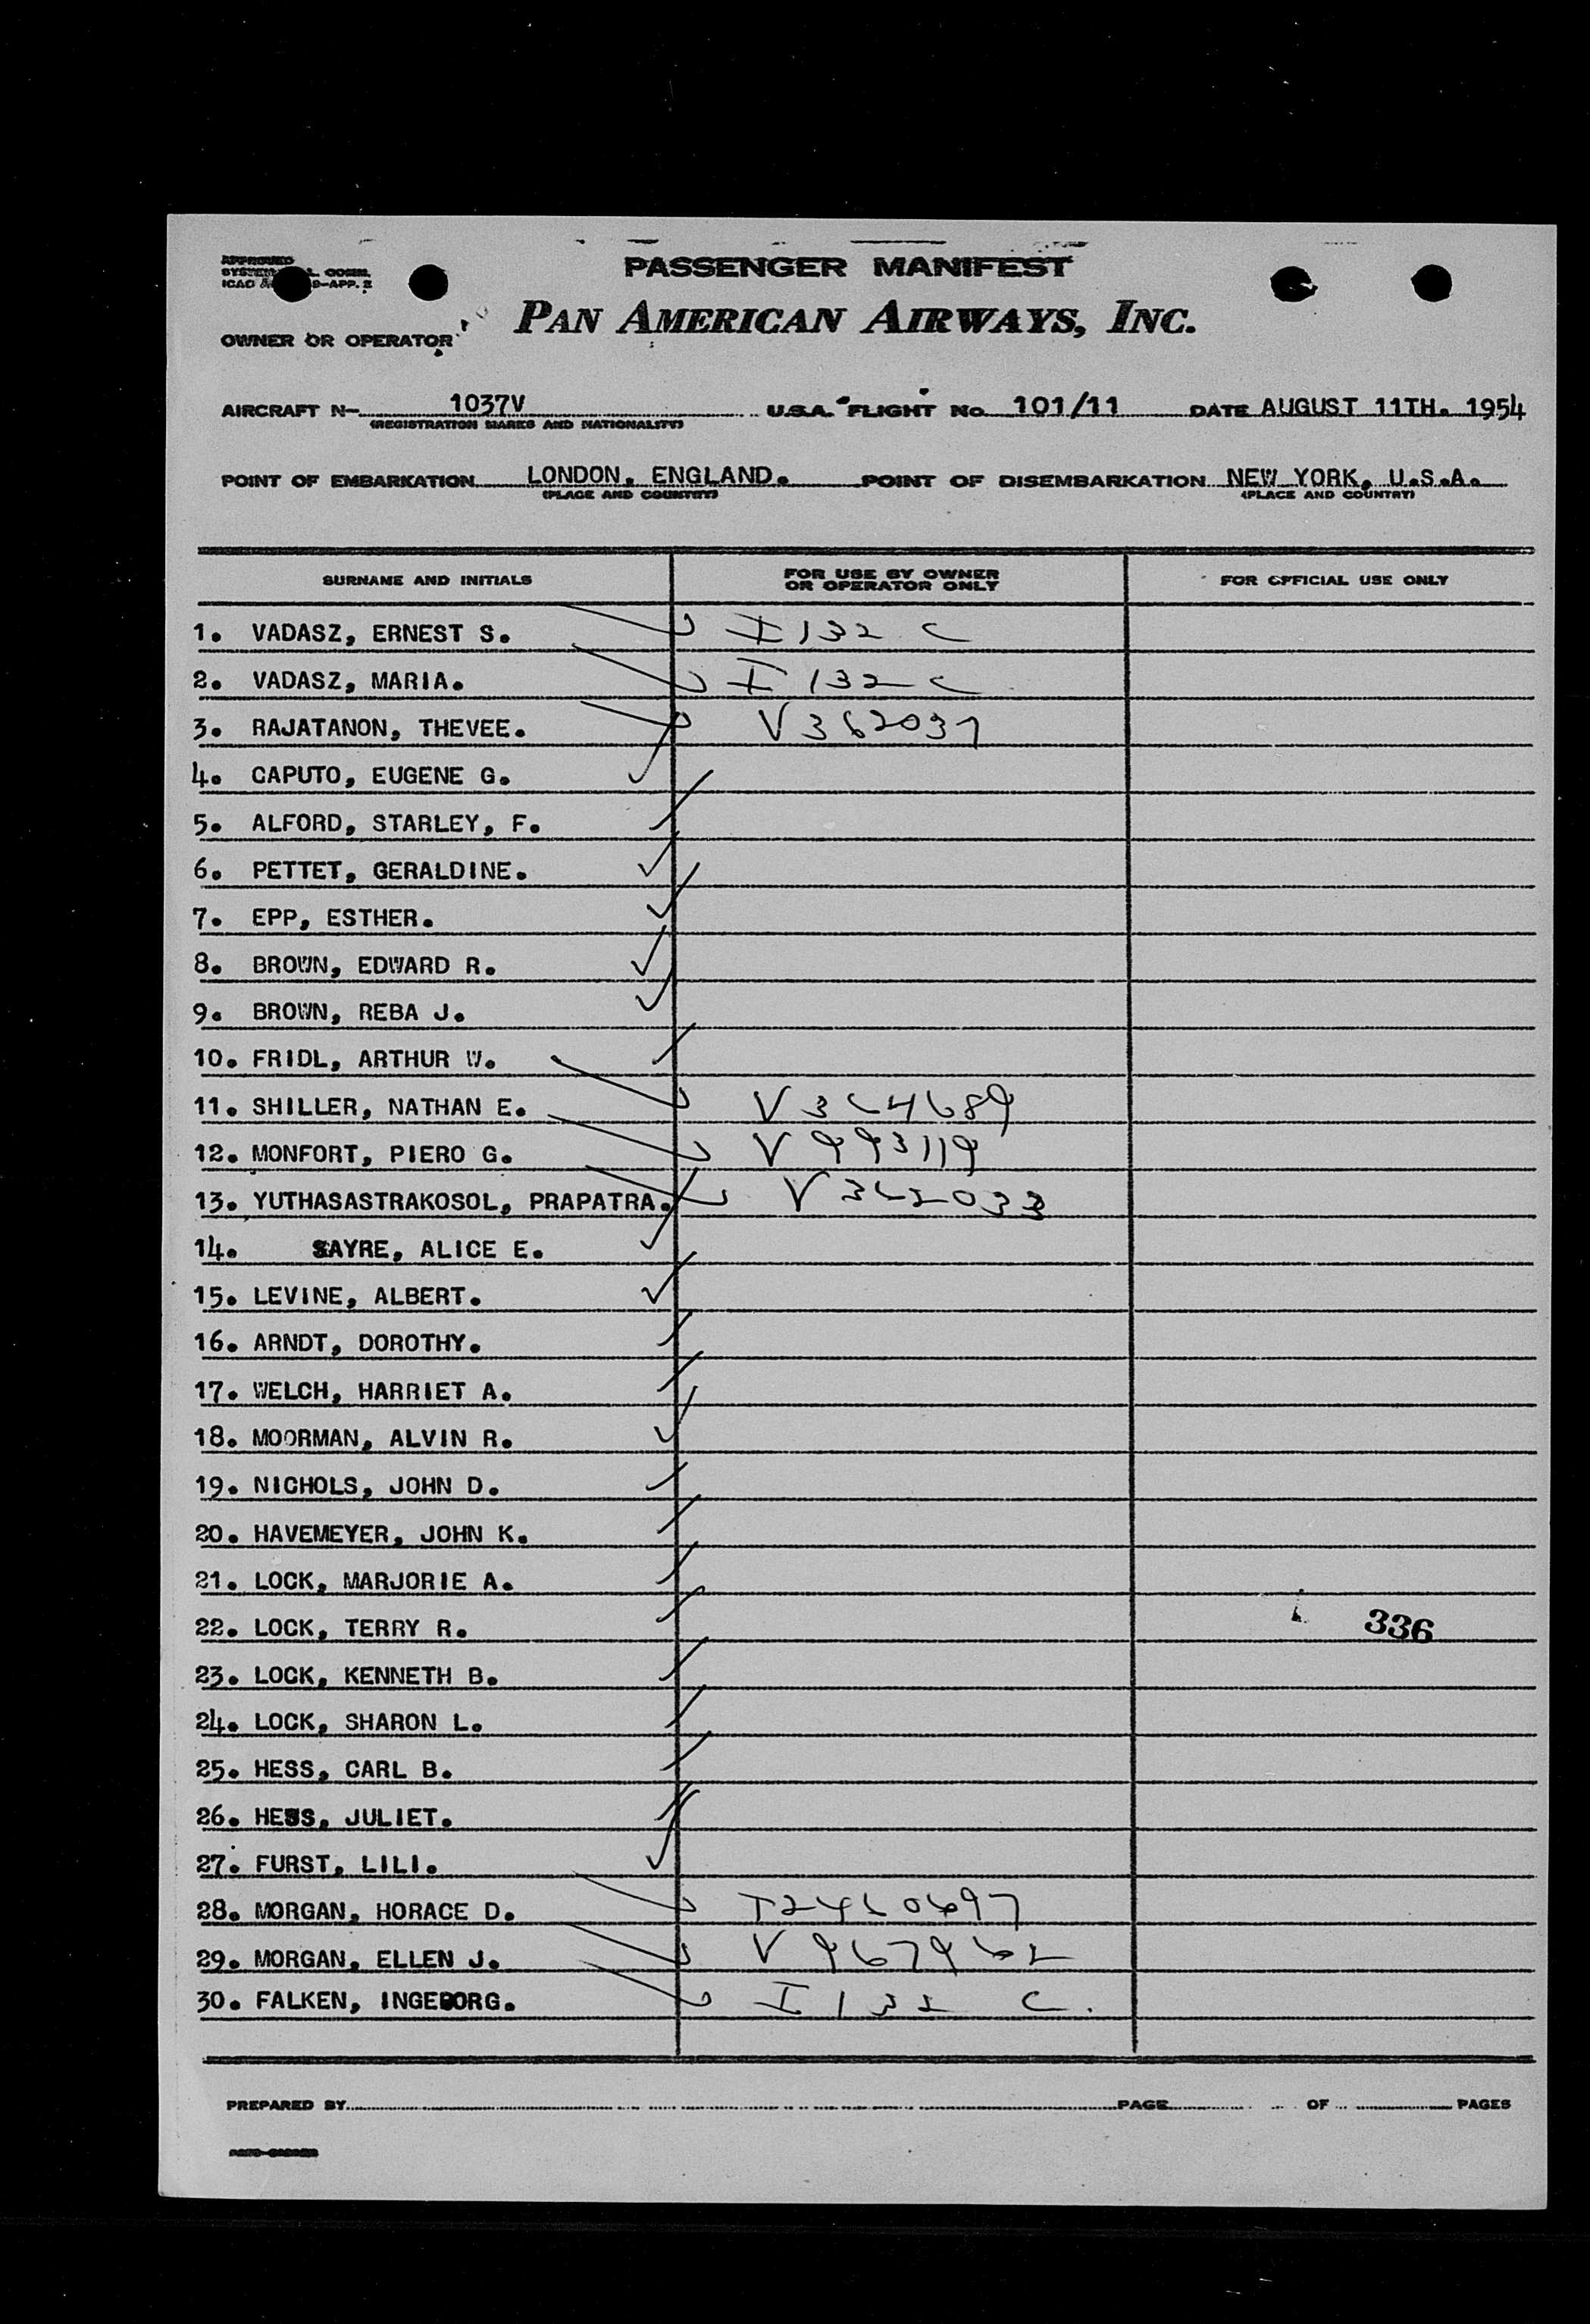 APPROVED
PASSENGER MANIFEST
PAN AMERICAN AIRWAYS, INC.
OWNER OR OPERATOR
AIRCRAFT N- 1037V U.S.A. FLIGHT No. 101/11 DATE AUGUST 11TH. 1954
(REGISTRATION MARKS AND NATIONALITY)
POINT OF EMBARKATION LONDON, ENGLAND. POINT OF DISEMBARKATION NEW YORK, U.S.A.
(PLACE AND COUNTRY) (PLACE AND COUNTRY)
SURNAME AND INITIALS FOR USE BY OWNER OR OPERATOR ONLY FOR OFFICIAL USE ONLY
1. VADASZ, ERNEST S. I 132 C
2. VADASZ, MARIA. I 132 C
3. RAJATANON, THEVEE. V 362037
4. CAPUTO, EUGENE G.
5. ALFORD, STARLEY, F.
6. PETTET, GERALDINE.
7. EPP, ESTHER.
8. BROWN, EDWARD R.
9. BROWN, REBA J.
10. FRIDL, ARTHUR W.
11. SHILLER, NATHAN E. V 364689
12. MONFORT, PIERO G. V 993119
13. YUTHASASTRAKOSOL, PRAPATRA. V 362033
14. SAYRE, ALICE E.
15. LEVINE, ALBERT.
16. ARNDT, DOROTHY.
17. WELCH, HARRIET A.
18. MOORMAN, ALVIN R.
19. NICHOLS, JOHN D.
20. HAVEMEYER, JOHN K.
21. LOCK, MARJORIE A.
22. LOCK, TERRY R. 336
23. LOCK, KENNETH B.
24. LOCK, SHARON L.
25. HESS, CARL B.
26. HESS, JULIET.
27. FURST, LILI.
28. MORGAN, HORACE D.
29. MORGAN, ELLEN J. V 967962
30. FALKEN, INGEBORG. I 132 C.
PREPARED BY PAGE OF PAGES